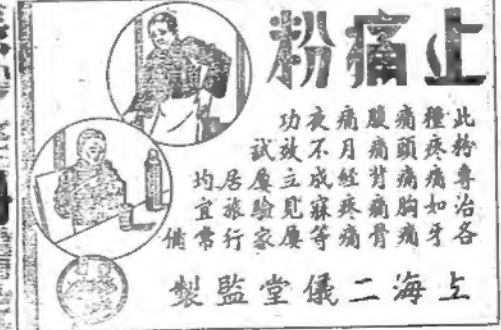 止痛粉
此粉專治各
種疼痛如牙
痛頭痛胸痛
腹痛背痛骨
痛月経疼痛
夜不成寐等
功效立見屢
試屢驗家
居旅行
均宜常
備
上海二儀堂監製